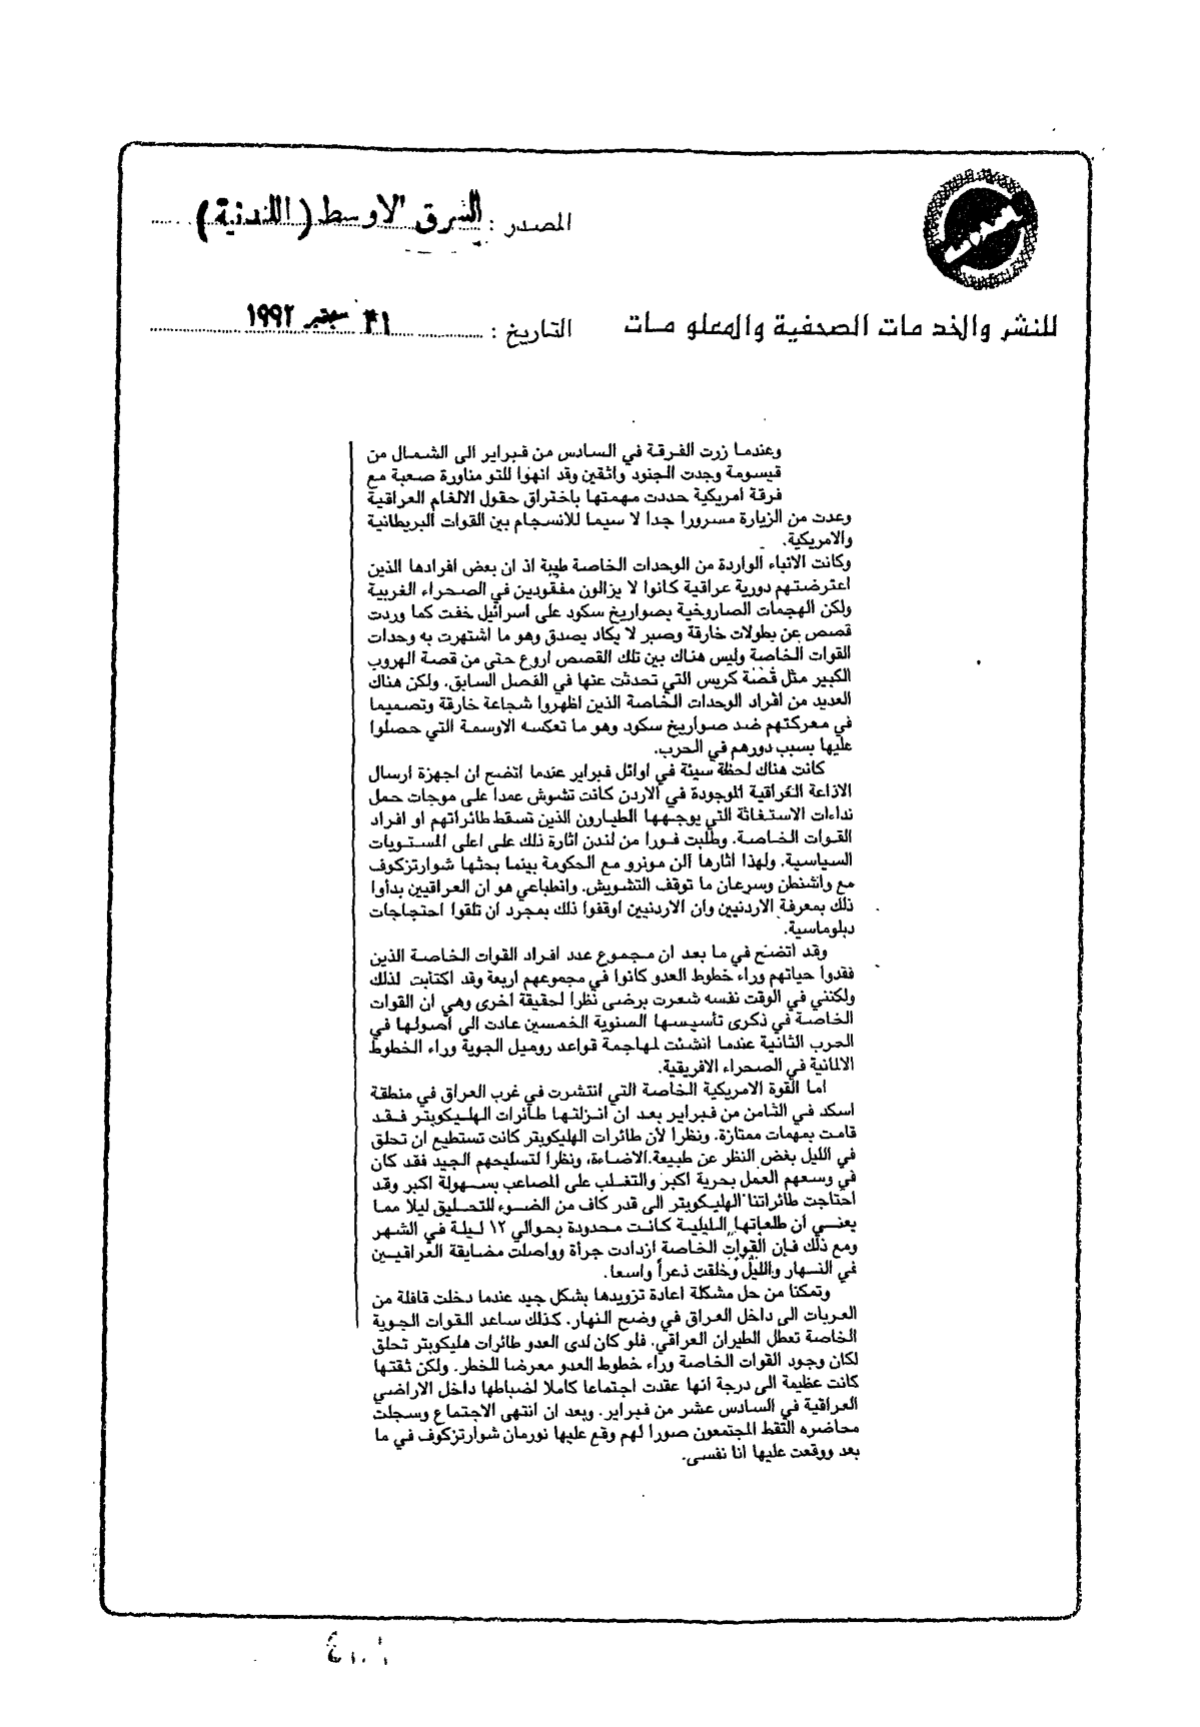 المصدر : الشرق الاوسط (اللندنية)
للنشر والخدمات الصحفية والمعلومات
التاريخ : سبتمبر ١٩٩٢
وعندما زرت الفرقة في السادس من فبراير الى الشمال من
قيسومة وجدت الجنود واثقين وقد انهوا للتو مناورة صعبة مع
فرقة امريكية حددت مهمتها باختراق حقول الالغام العراقية
وعدت من الزيارة مسرورا جدا لا سيما للانسجام بين القوات البريطانية
والامريكية.
وكانت الانباء الواردة من الوحدات الخاصة طيبة اذ ان بعض افرادها الذين
اعترضتهم دورية عراقية كانوا لا يزالون مفقودين في الصحراء الغربية
ولكن الهجمات الصاروخية بصواريخ سكود على اسرائيل خفت كما وردت
قصص عن بطولات خارقة وصبر لا يكاد يصدق وهو ما اشتهرت به وحدات
القوات الخاصة وليس هناك بين تلك القصص اروع حتى من قصة الهروب
الكبير مثل قصة كريس التي تحدثت عنها في الفصل السابق. ولكن هناك
العديد من افراد الوحدات الخاصة الذين اظهروا شجاعة خارقة وتصميما
في معركتهم ضد صواريخ سكود وهو ما تعكسه الاوسمة التي حصلوا
عليها بسبب دورهم في الحرب.
كانت هناك لحظة سيئة في اوائل فبراير عندما اتضح ان اجهزة ارسال
الاذاعة العراقية الموجودة في الاردن كانت تشوش عمدا على موجات حمل
نداءات الاستغاثة التي يوجهها الطيارون الذين تسقط طائراتهم او افراد
القوات الخاصة. وطلبت فورا من لندن اثارة ذلك على اعلى المستويات
السياسية. ولهذا اثارها الن مونرو مع الحكومة بينما بحثها شوارتزكوف
مع واشنطن وسرعان ما توقف التشويش. وانطباعي هو ان العراقيين بدأوا
ذلك بمعرفة الاردنيين وان الاردنيين اوقفوا ذلك بمجرد ان تلقوا احتجاجات
دبلوماسية.
وقد اتضح في ما بعد ان مجموع عدد افراد القوات الخاصة الذين
فقدوا حياتهم وراء خطوط العدو كانوا في مجموعهم اربعة وقد اكتأبت لذلك
ولكنني في الوقت نفسه شعرت برضى نظرا لحقيقة اخرى وهي ان القوات
الخاصة في ذكرى تأسيسها السنوية الخمسين عادت الى اصولها في
الحرب الثانية عندما انشئت لمهاجمة قواعد روميل الجوية وراء الخطوط
الالمانية في الصحراء الافريقية.
اما القوة الامريكية الخاصة التي انتشرت في غرب العراق في منطقة
اسكد في الثامن من فبراير بعد ان انزلتها طائرات الهليكوبتر فقد
قامت بمهمات ممتازة. ونظرا لأن طائرات الهليكوبتر كانت تستطيع ان تحلق
في الليل بغض النظر عن طبيعة الاضاءة، ونظرا لتسليحهم الجيد فقد كان
في وسعهم العمل بحرية اكبر والتغلب على المصاعب بسهولة اكبر وقد
احتاجت طائراتنا الهليكوبتر الى قدر كاف من الضوء للتحليق ليلا مما
يعني أن طلعاتها الليلية كانت محدودة بحوالي ١٢ ليلة في الشهر
ومع ذلك فإن القوات الخاصة ازدادت جرأة وواصلت مضايقة العراقيين
في النهار والليل وخلقت ذعراً واسعا.
وتمكنا من حل مشكلة اعادة تزويدها بشكل جيد عندما دخلت قافلة من
العربات الى داخل العراق في وضح النهار. كذلك ساعد القوات الجوية
الخاصة تعطل الطيران العراقي. فلو كان لدى العدو طائرات هليكوبتر تحلق
لكان وجود القوات الخاصة وراء خطوط العدو معرضا للخطر. ولكن ثقتها
كانت عظيمة الى درجة انها عقدت اجتماعا كاملا لضباطها داخل الاراضي
العراقية في السادس عشر من فبراير. وبعد ان انتهى الاجتماع وسجلت
محاضره التقط المجتمعون صورا لهم وقع عليها نورمان شوارتزكوف في ما
بعد ووقعت عليها انا نفسي.